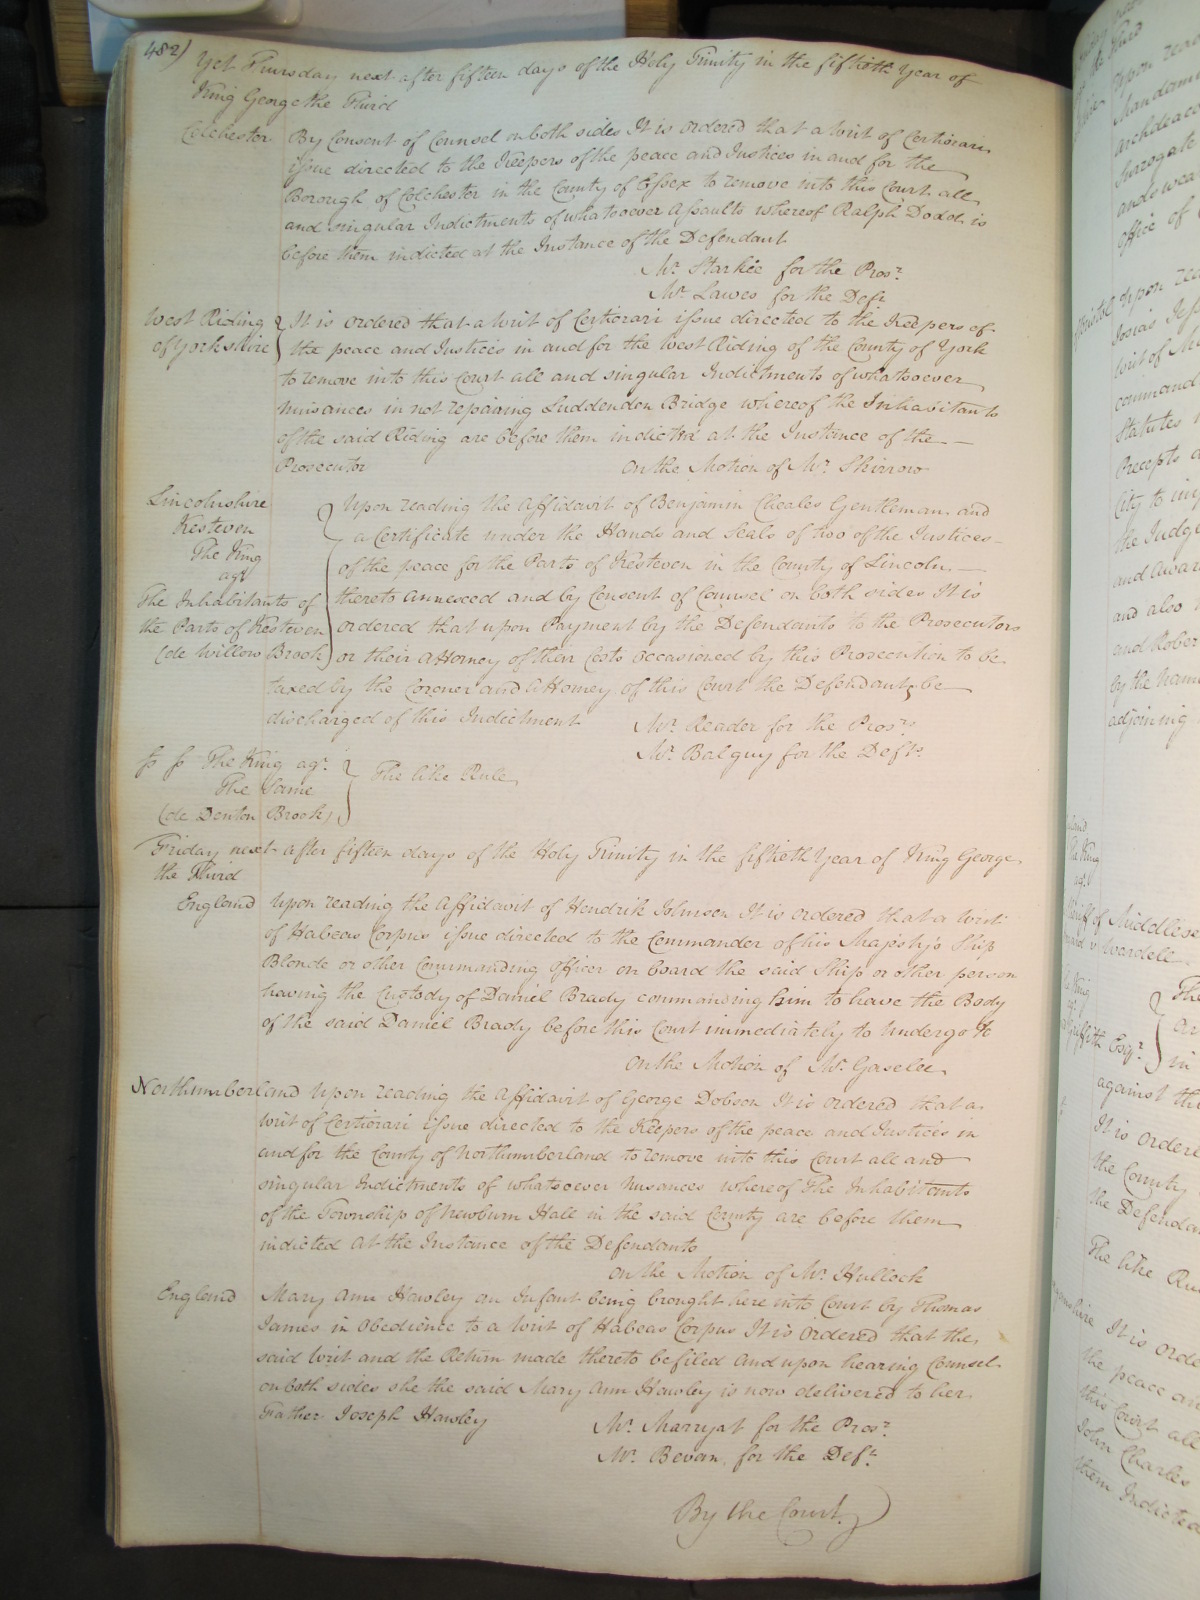 482)
Yet Thursday next after fifteen days of the Holy Trinity in the fiftieth Year of
King George the Third
Colchester By Consent of Counsel on both sides It is ordered that a Writ of Certiorari
issue directed to the Keepers of the peace and Justices in and for the
Borough of Colchester in the County of Essex to remove into this Court all
and singular Indictments of whatsoever Assaults whereof Ralph Dodd is
before them indicted at the Instance of the Defendant
Mr. Starkie for the Prosr.
Mr. Lawes for the Deft
West Riding of Yorkshire It is ordered that a Writ of Certiorari issue directed to the Keepers of
the peace and Justices in and for the West Riding of the County of York
to remove into this Court all and singular Indictments of whatsoever
Nuisances in not repairing Luddenden Bridge whereof the Inhabitants
of the said Riding are before them indicted at the Instance of the
Prosecutor On the Motion of Mr. Skirrow
Lincolnshire
Kesteven
The King
agt
The Inhabitants of
the Parts of Kesteven
(de Willow Brook)
Upon reading the Affidavit of Benjamin Cheales Gentleman and
a Certificate under the Hands and Seals of two of the Justices
of the peace for the Parts of Kesteven in the County of Lincoln
thereto annexed and by Consent of Counsel on both sides It is
ordered that upon Payment by the Defendants to the Prosecutors
or their Attorney of their Costs occasioned by this Prosecution to be
taxed by the Coroner and Attorney of this Court the Defendants be
discharged of this Indictment Mr. Reader for the Prosrs
Mr. Balguy for the Defts.
The King agt.
The Same
(de Denton Brook)
The like Rule
Friday next after fifteen days of the Holy Trinity in the fiftieth Year of King George
the Third
England Upon reading the Affidavit of Hendrik Johnson It is ordered that a Writ
of Habeas Corpus issue directed to the Commander of his Majesty's Ship
Blonde or other Commanding Officer on board the said Ship or other person
having the Custody of Daniel Brady commanding him to have the Body
of the said Daniel Brady before this Court immediately to undergo &c
On the Motion of Mr. Gaselee
Northumberland Upon reading the Affidavit of George Dobson It is ordered that a
Writ of Certiorari issue directed to the Keepers of the peace and Justices in
and for the County of Northumberland to remove into this Court all and
singular Indictments of whatsoever Nusances whereof The Inhabitants
of the Township of Newburn Hall in the said County are before them
indicted at the Instance of the Defendants
On the Motion of Mr. Hullock
England Mary Ann Hawley an Infant being brought here into Court by Thomas
James in Obedience to a Writ of Habeas Corpus It is ordered that the
said Writ and the Return made thereto be filed And upon hearing Counsel
on both sides she the said Mary Ann Hawley is now delivered to her
Father Joseph Hawley
Mr. Marryat for the Prosr.
Mr. Bevan for the Deft.
By the Court